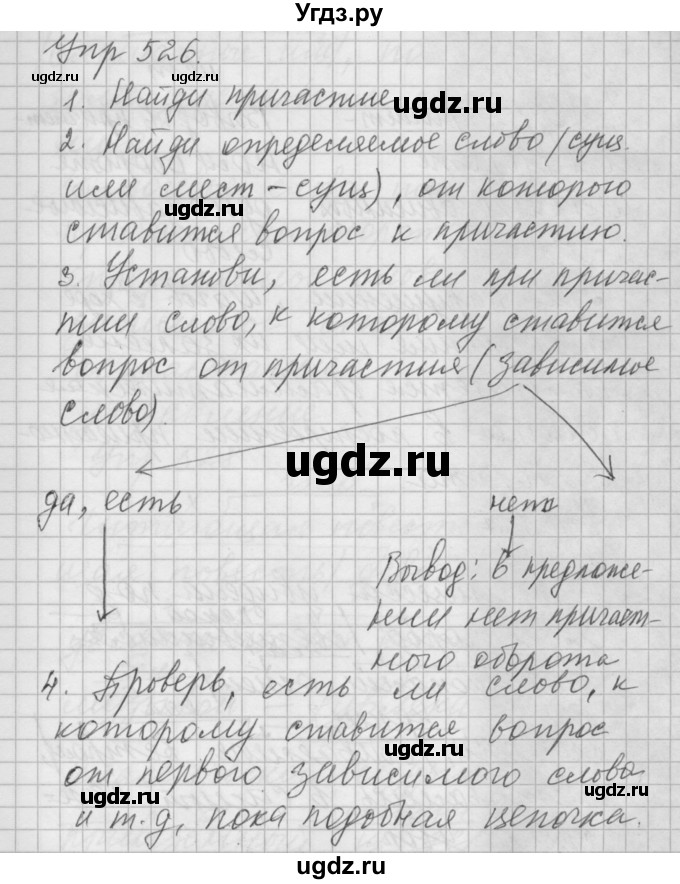 Угдз.ру
Упр 526.
ugdz.ru
ugdz.ru
1. Найди причастие
ugdz.ru
2. Найди определяемое слово (сущ.
или мест-сущ), от которого
ugdz.ru
ставится вопрос к причастию.
3. Установи, есть ли при причас-
тии слово, к которому ставится
вопрос от причастия (зависимое
слово).
ugdz.ru
да, есть
нет
Вывод: в предложе-
нии нет причаст-
ного оборота
4. Проверь, есть ли слово, к
которому ставится вопрос
ugdz.ru
от первого зависимого слова
ugdz.ru
ugdz.ru
и т.д, пока подобная цепочка.
ugdz.ru